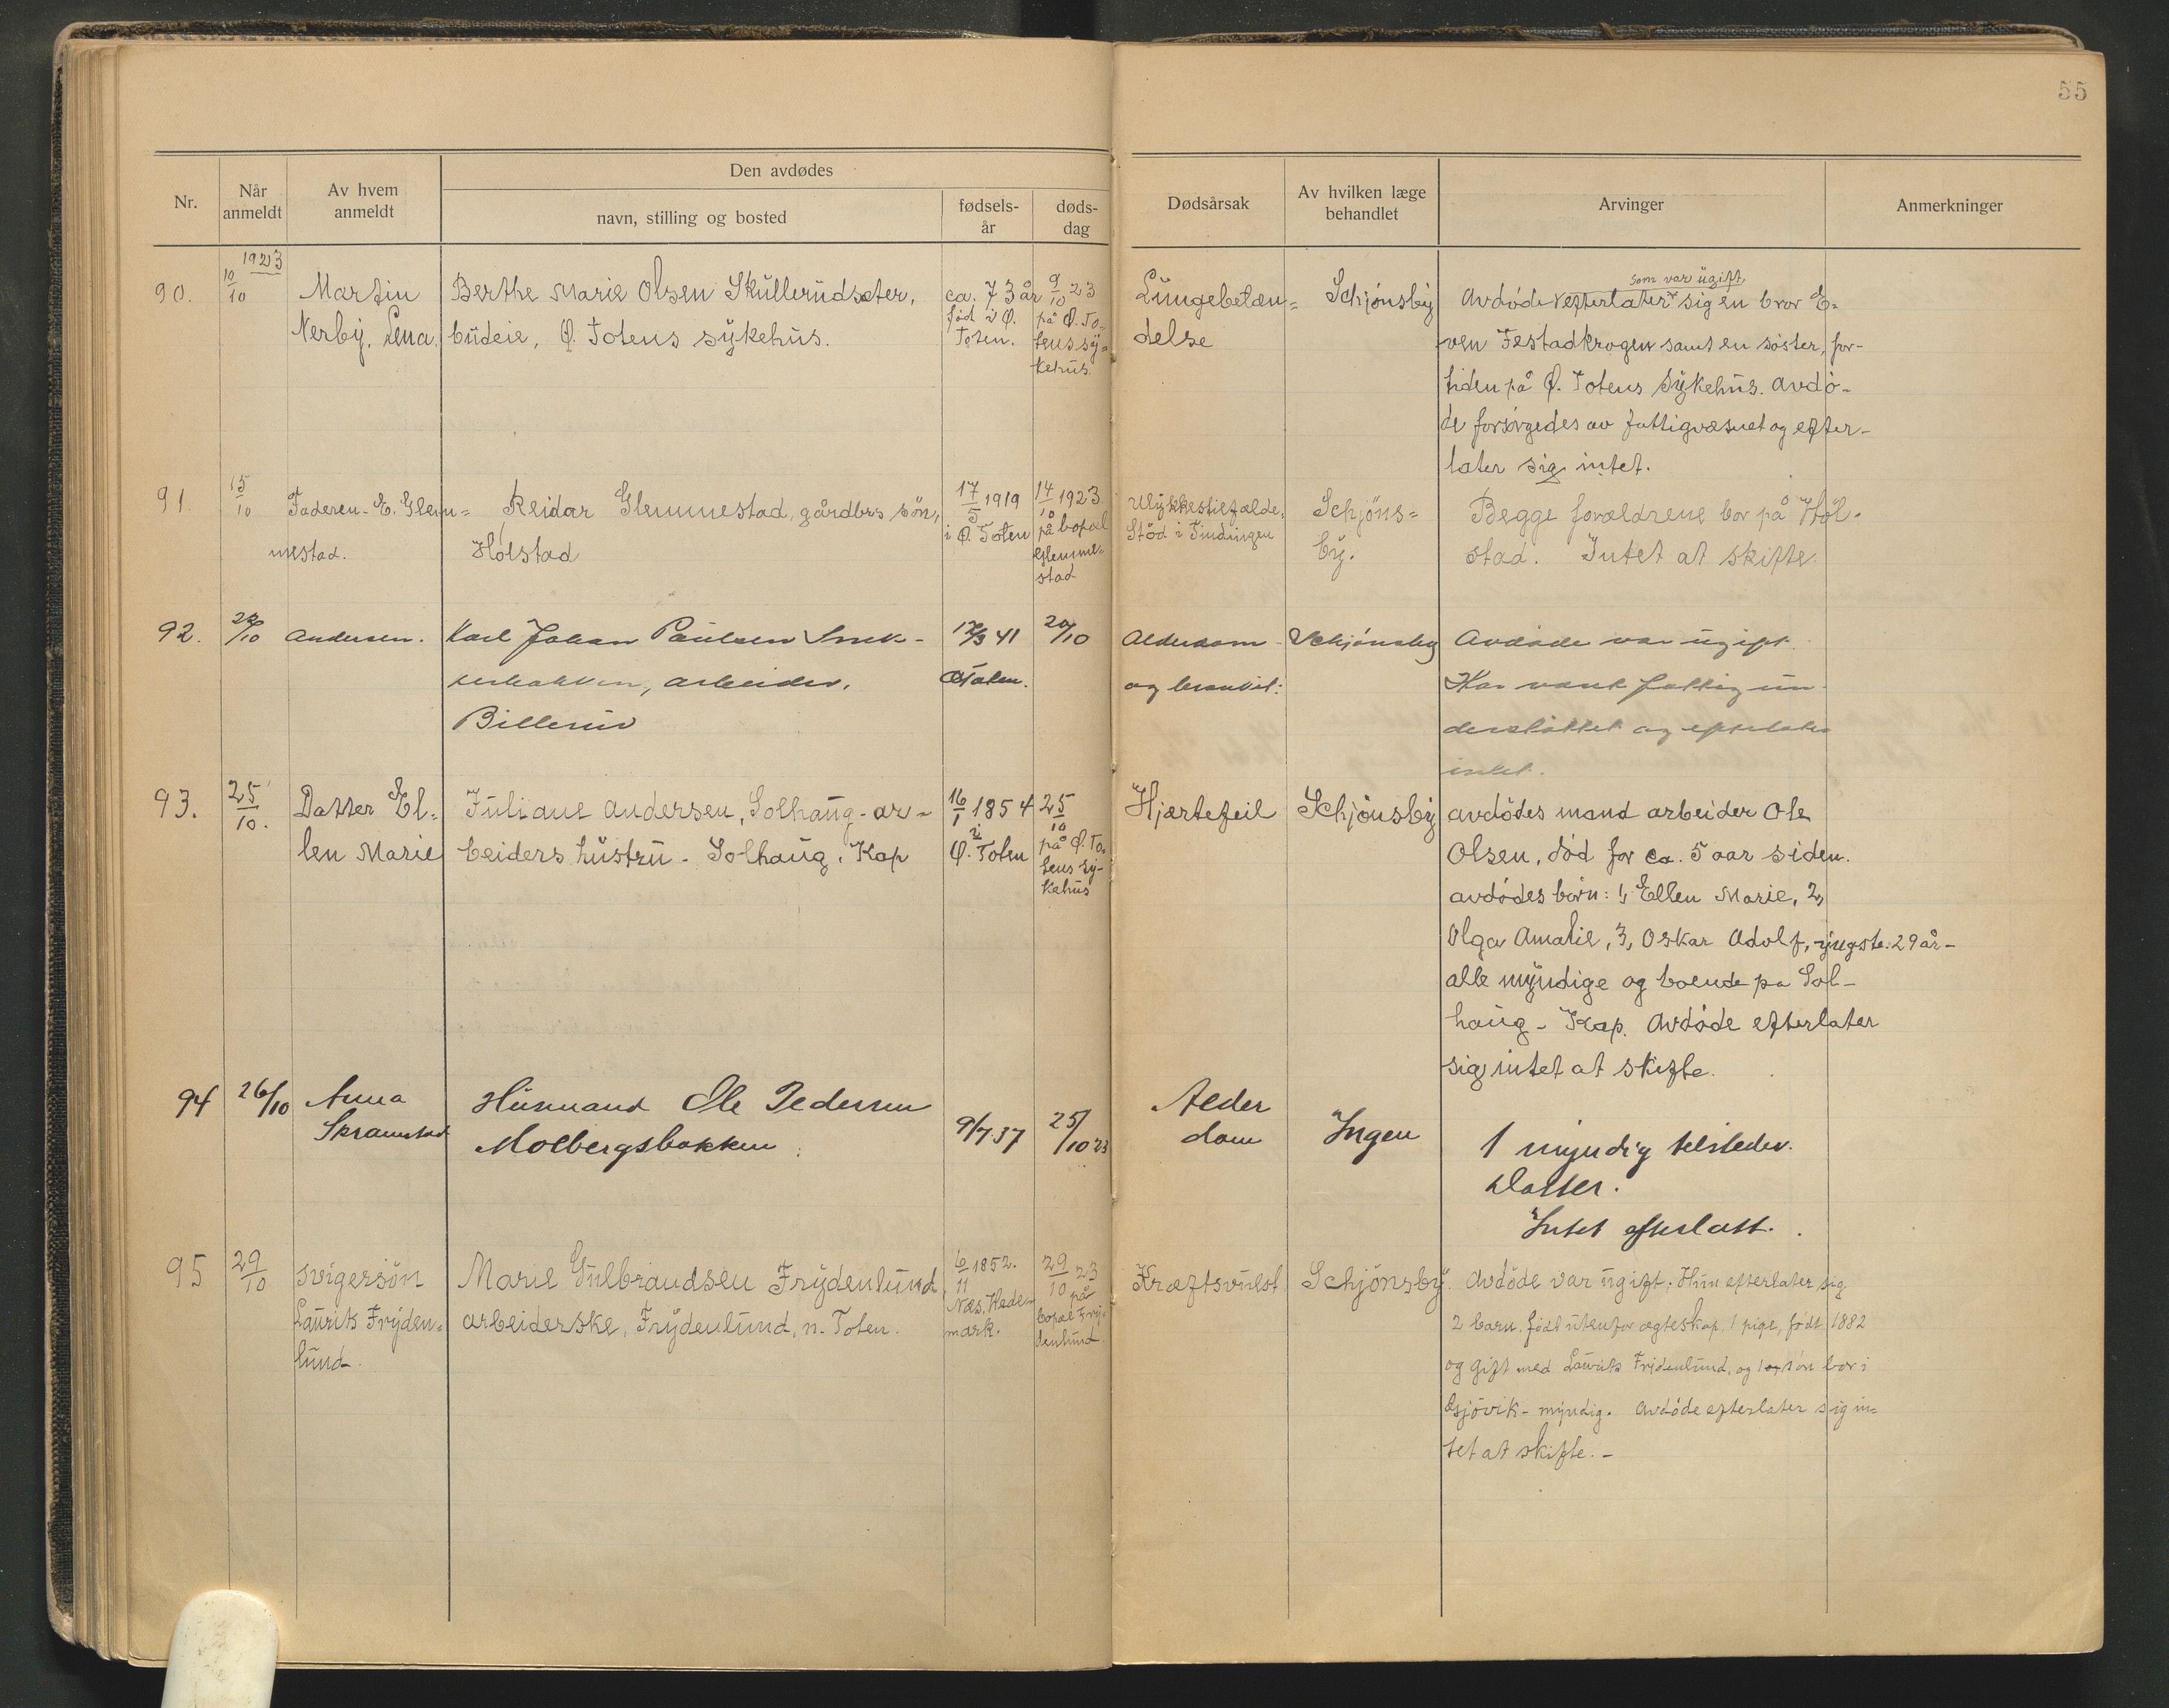 55
Den avdødes
Nr.
Når anmeldt
Av hvem anmeldt
navn, stilling og bosted
fødsels-år
døds-dag
Dødsårsak
Av hvilken læge behandlet
Arvinger
Anmerkninger
1923
90.
10/10
Martin
Nerby, Lena.
Berthe Marie Olsen Skullerudsæter,
budeie, Ø. Totens sykehus.
ca. 73 år
fød i Ø.
Toten.
9/10 23
på Ø. To-
tens sy=
kehus.
Lungebetæn=
delse
Schjønsby
som var ugift,
Avdøde efterlater sig en bror E-
ven Festadkrogen samt en søster, for-
tiden på Ø. Totens sykehus. Avdø-
de forsørgedes av fattigvæsnet og efter-
later sig intet.
91
15/10
Faderen - E. Glem=
mestad.
Reidar Glemmestad, gårdbrs søn,
Hølstad
17/5 1919
i Ø. Toten
14/10 1923
på bopæl
Glemme=
stad
Ulykkestilfælde,
Stød i Tindingen
Schjøns=
by.
Begge forældrene bor på Høl-
stad. Intet at skifte.
92.
22/10
Andersen.
Karl Johan Paulsen
arbeider.
Billerud
12/3 41
Ø Toten.
20/10
Alderdom
og bronkit:
Schjønsby
Avdøde var ugift.
Har vært fattig un-
derstøttet og efterlater
intet.
93.
25/10.
Datter El=
len Marie
Juliane Andersen, Solhaug - ar-
beiders hustru - Solhaug, Kap
16/1 1854
i
Ø. Toten
25/10
på Ø. To-
tens sy-
kehus
Hjertefeil
Schjønsby
avdødes mand arbeider Ole
Olsen, død for ca. 5 aar siden.
avdødes børn: 1, Ellen Marie, 2,
Olga Amalie, 3, Oskar Adolf, yngste: 29 år -
alle myndige og boende pa Sol-
haug - Kap. Avdøde efterlater
sig intet at skifte.
94
26/10
Anna
Skramstad
Husmand Ole Pedersen
Molbergsbakken
9/7 37
25/10 23
Alder
dom
Ingen
1 myndig tilstedev.
Datter.
Intet efterlatt.
95
29/10
svigersøn
Laurits Fryden=
lund.
Marie Gulbrandsen Frydenlund
arbeiderske, Frydenlund, n. Toten.
6/11 1852.
Næs, Hede-
mark.
29/10 23
på
bopæl Fry-
denlund
Kræftsvulst
Schjønsby.
Avdøde var ugift; Hun efterlater sig
2 barn, født utenfor ægteskap, 1 pige, født 1882
og gift med Laurits Frydenlund, og 1 søn bor i
Gjøvik - myndig. Avdøde efterlater sig in=
tet at skifte. -